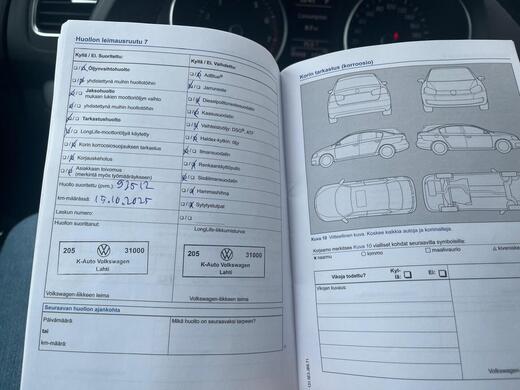 Huollon leimausruutu 7
Kyllä / Ei. Suoritettu:
Öljynvaihtohuolto
yhdistettynä muihin huoltotöihin
Jaksohuolto
mukaan lukien moottoriöljyn vaihto
yhdistettynä muihin huoltotöihin
Tarkastushuolto
LongLife-moottoriöljyä käytetty
Korin korroosiosuojauksen tarkastus
Korjauskehotus
Asiakkaan toivomus
(merkintä myös työmääräykseen)
Huolto suoritettu (pvm.) 93512
km-määrässä: 15.10.2025
Laskun numero:
Huollon suorittanut:
205 31000
K-Auto Volkswagen
Lahti
Volkswagen-liikkeen leima
Kyllä / Ei. Vaihdettu:
AdBlue®
Jarruneste
Dieselpolttoaineensuodatin
Kaasusuodatin
Vaihteistoöljy: DSG®, ATF
Haldex-kytkin: öljy
Ilmansuodatin
Renkaantäyttöpullo
Sisäilmansuodatin
Hammashihna
Sytytystulpat
LongLife-liikkumisturva
205 31000
K-Auto Volkswagen
Lahti
Volkswagen-liikkeen leima
Seuraavan huollon ajankohta
Päivämäärä:
tai
km-määrä:
Mikä huolto on seuraavaksi tarpeen?
Korin tarkastus (korroosio)
Kuva 10 Viitteellinen kuva. Koskee kaikkia autoja ja korimalleja.
Korjaamo merkitsee Kuva 10 vialliset kohdat seuraavilla symboleilla:
x naarmu
○ lommo
□ maalivaurio
△ kiveniskemä
Vikoja todettu?
Kyl-
lä:
Ei:
Vikojen kuvaus:
Volkswagen